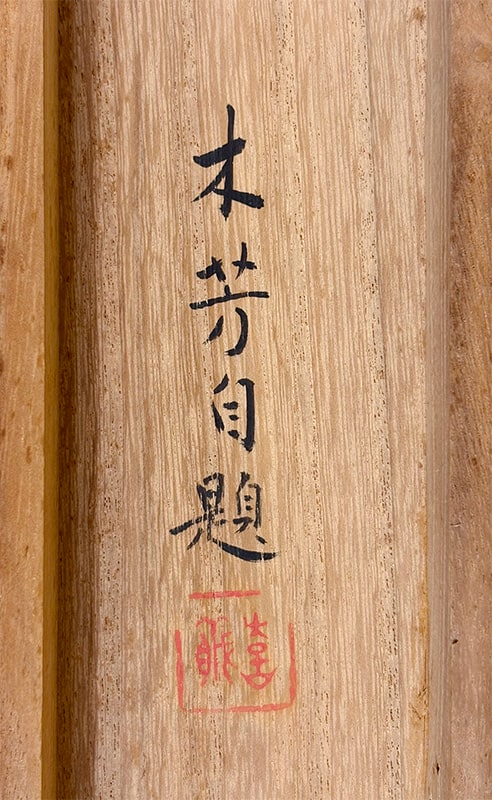 木芳自題